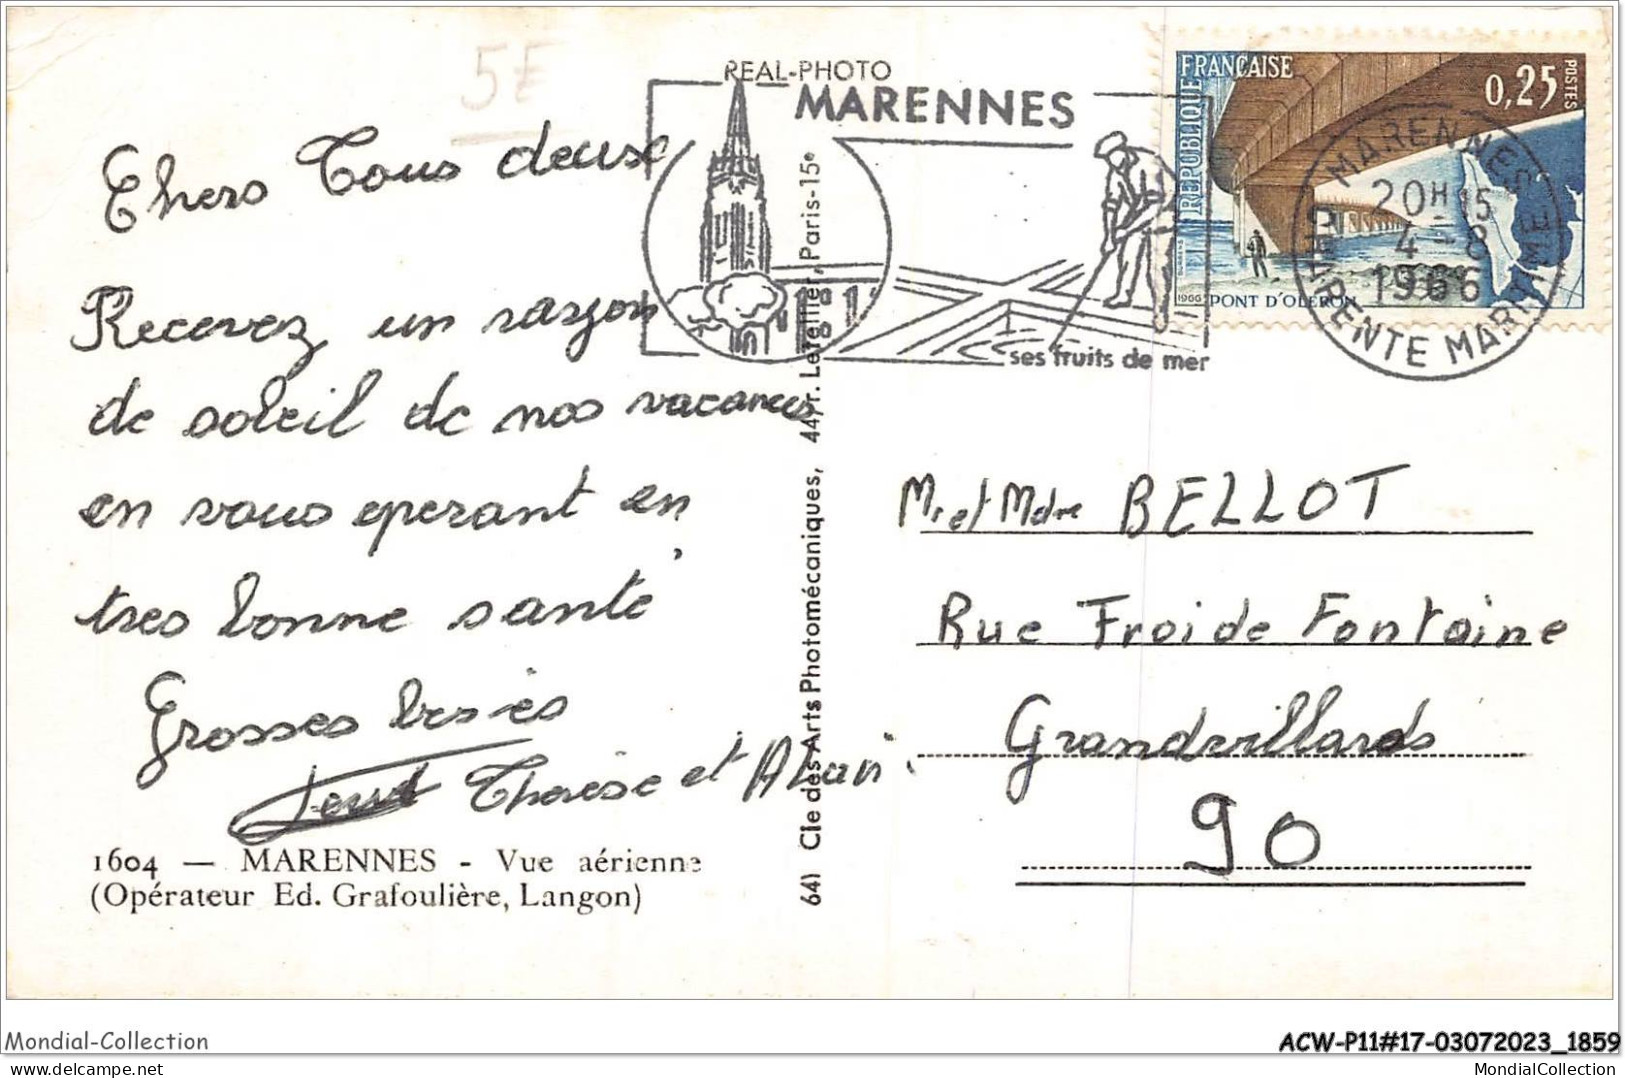 5E
REAL-PHOTO
MARENNES
ses fruits de mer
RÉPUBLIQUE FRANÇAISE
0,25 POSTES
1966 PONT D'OLERON
MARENNES
20H15
4-8
1966
CHARENTE MARITIME
Chers Tous deux
Recevez un rayon
de soleil de nos vacances
en vous eperant en
tres bonne santé
Grosses bises
Thérèse et Alain.
1604 — MARENNES - Vue aérienne
(Opérateur Ed. Grafoulière, Langon)
641 Cie des Arts Photomécaniques, 44, r. Letellier, Paris-15e
Mr et Mdme BELLOT
Rue Froide Fontaine
Grandvillards
90
Mondial-Collection
ACW-P11#17-03072023_1859
MondialCollection